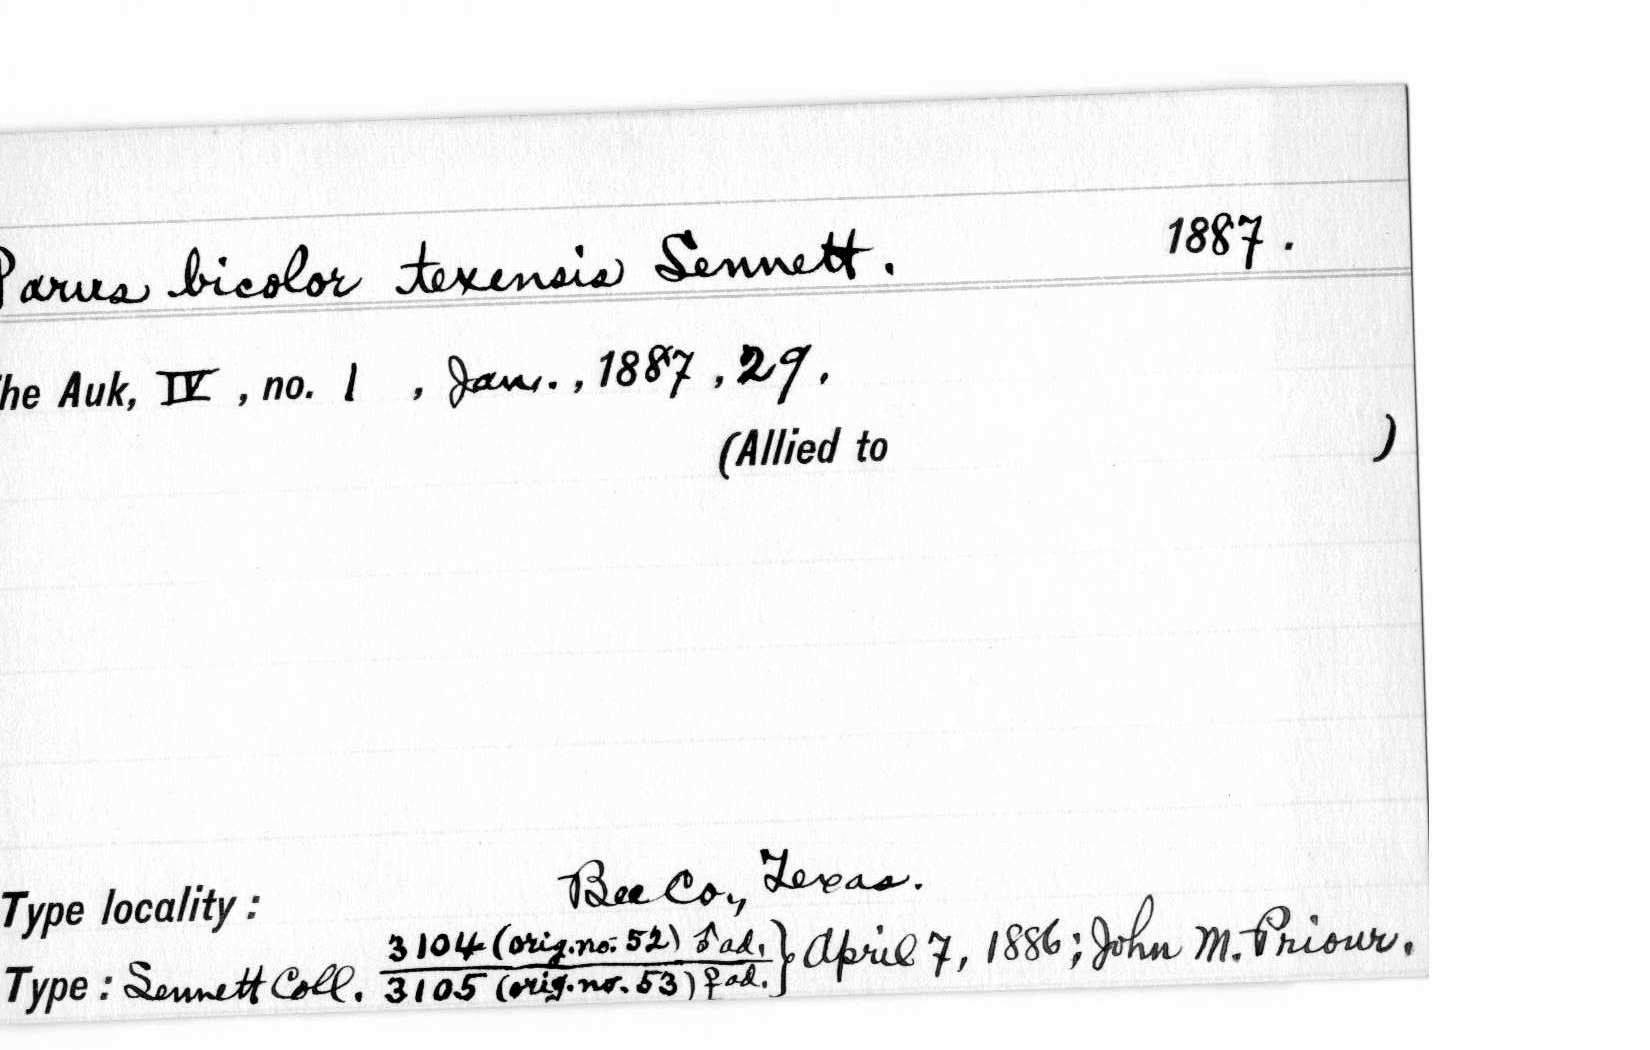 Parus bicolor texensis Sennett. 1887.
The Auk, IV, no. 1, Jan., 1887, 29.
(Allied to )
Type locality: Bee Co., Texas.
Type: Sennett Coll. 3104 (orig. no. 52) ♂ ad.
3105 (orig. no. 53) ♀ ad. } April 7, 1886; John M. Priour.